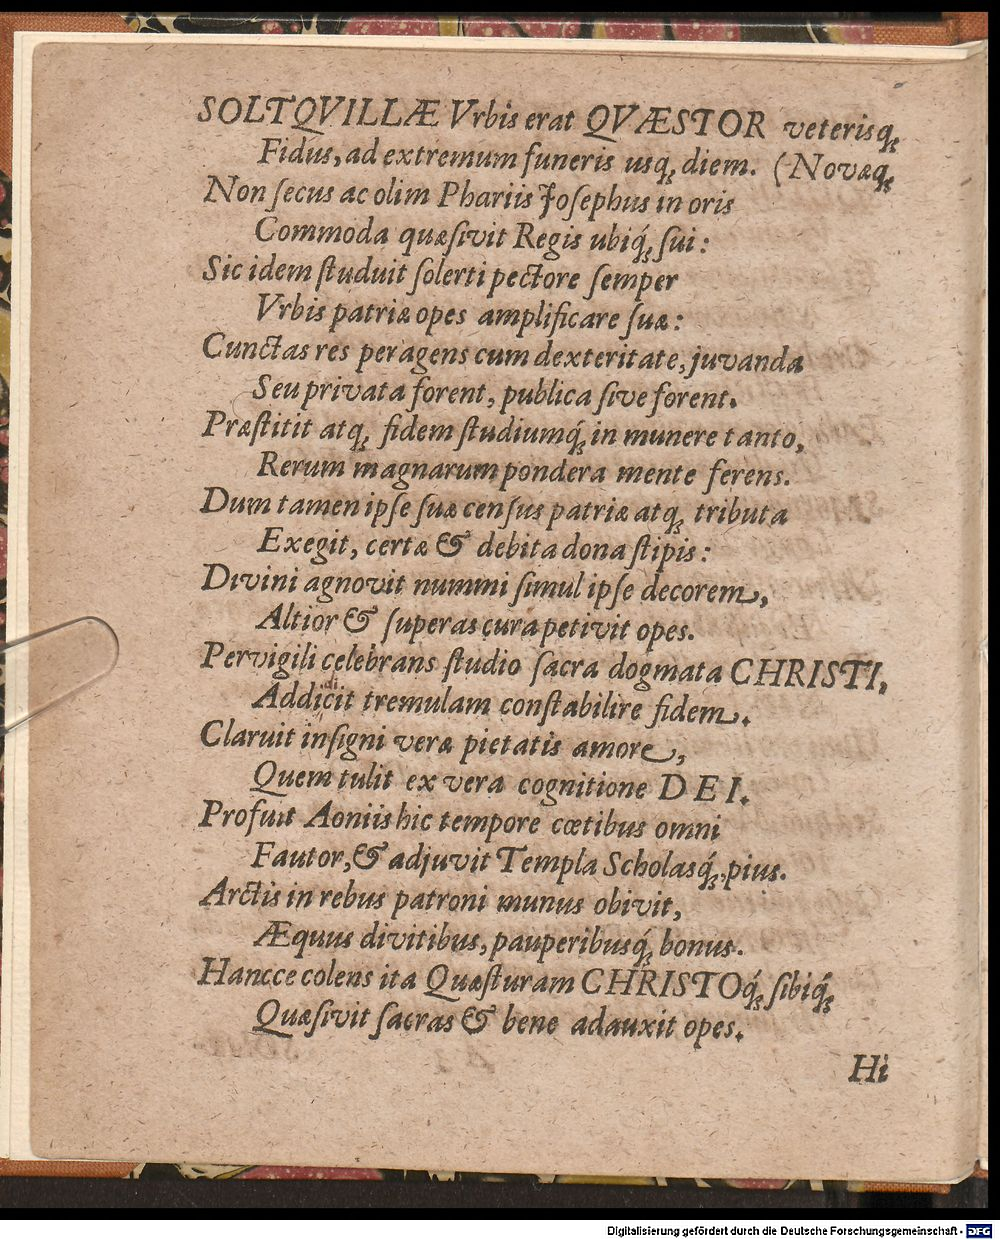 SOLTQVILLÆ Vrbis erat QVÆSTOR veterisq́;
Fidus, ad extremum funeris usq; diem. (Novæq́;
Non ſecus ac olim Phariis Joſephus in oris
Commoda quæſivit Regis ubiq́; ſui:
Sic idem ſtuduit ſolerti pectore ſemper
Vrbis patriæ opes amplificare ſuæ:
Cunctas res peragens cum dexteritate, juvanda
Seu privata forent, publica ſive forent.
Præſtitit atq; fidem ſtudiumq́; in munere tanto,
Rerum magnarum pondera mente ferens.
Dum tamen ipſe ſuæ cenſus patriæ atq; tributa
Exegit, certæ & debita dona ſtipis:
Divini agnovit nummi ſimul ipſe decorem,
Altior & ſuperas cura petivit opes.
Pervigili celebrans ſtudio ſacra dogmata CHRISTI,
Addicit tremulam conſtabilire fidem.
Claruit inſigni veræ pietatis amore,
Quem tulit ex vera cognitione DEI.
Profuit Aoniis hic tempore cœtibus omni
Fautor, & adjuvit Templa Scholasq́; pius.
Arctis in rebus patroni munus obivit,
Æquus divitibus, pauperibusq́; bonus.
Hancce colens ita Quæſturam CHRISTOq́; ſibiq́;
Quæſivit ſacras & bene adauxit opes.
Hi
Digitalisierung gefördert durch die Deutsche Forschungsgemeinschaft - DFG